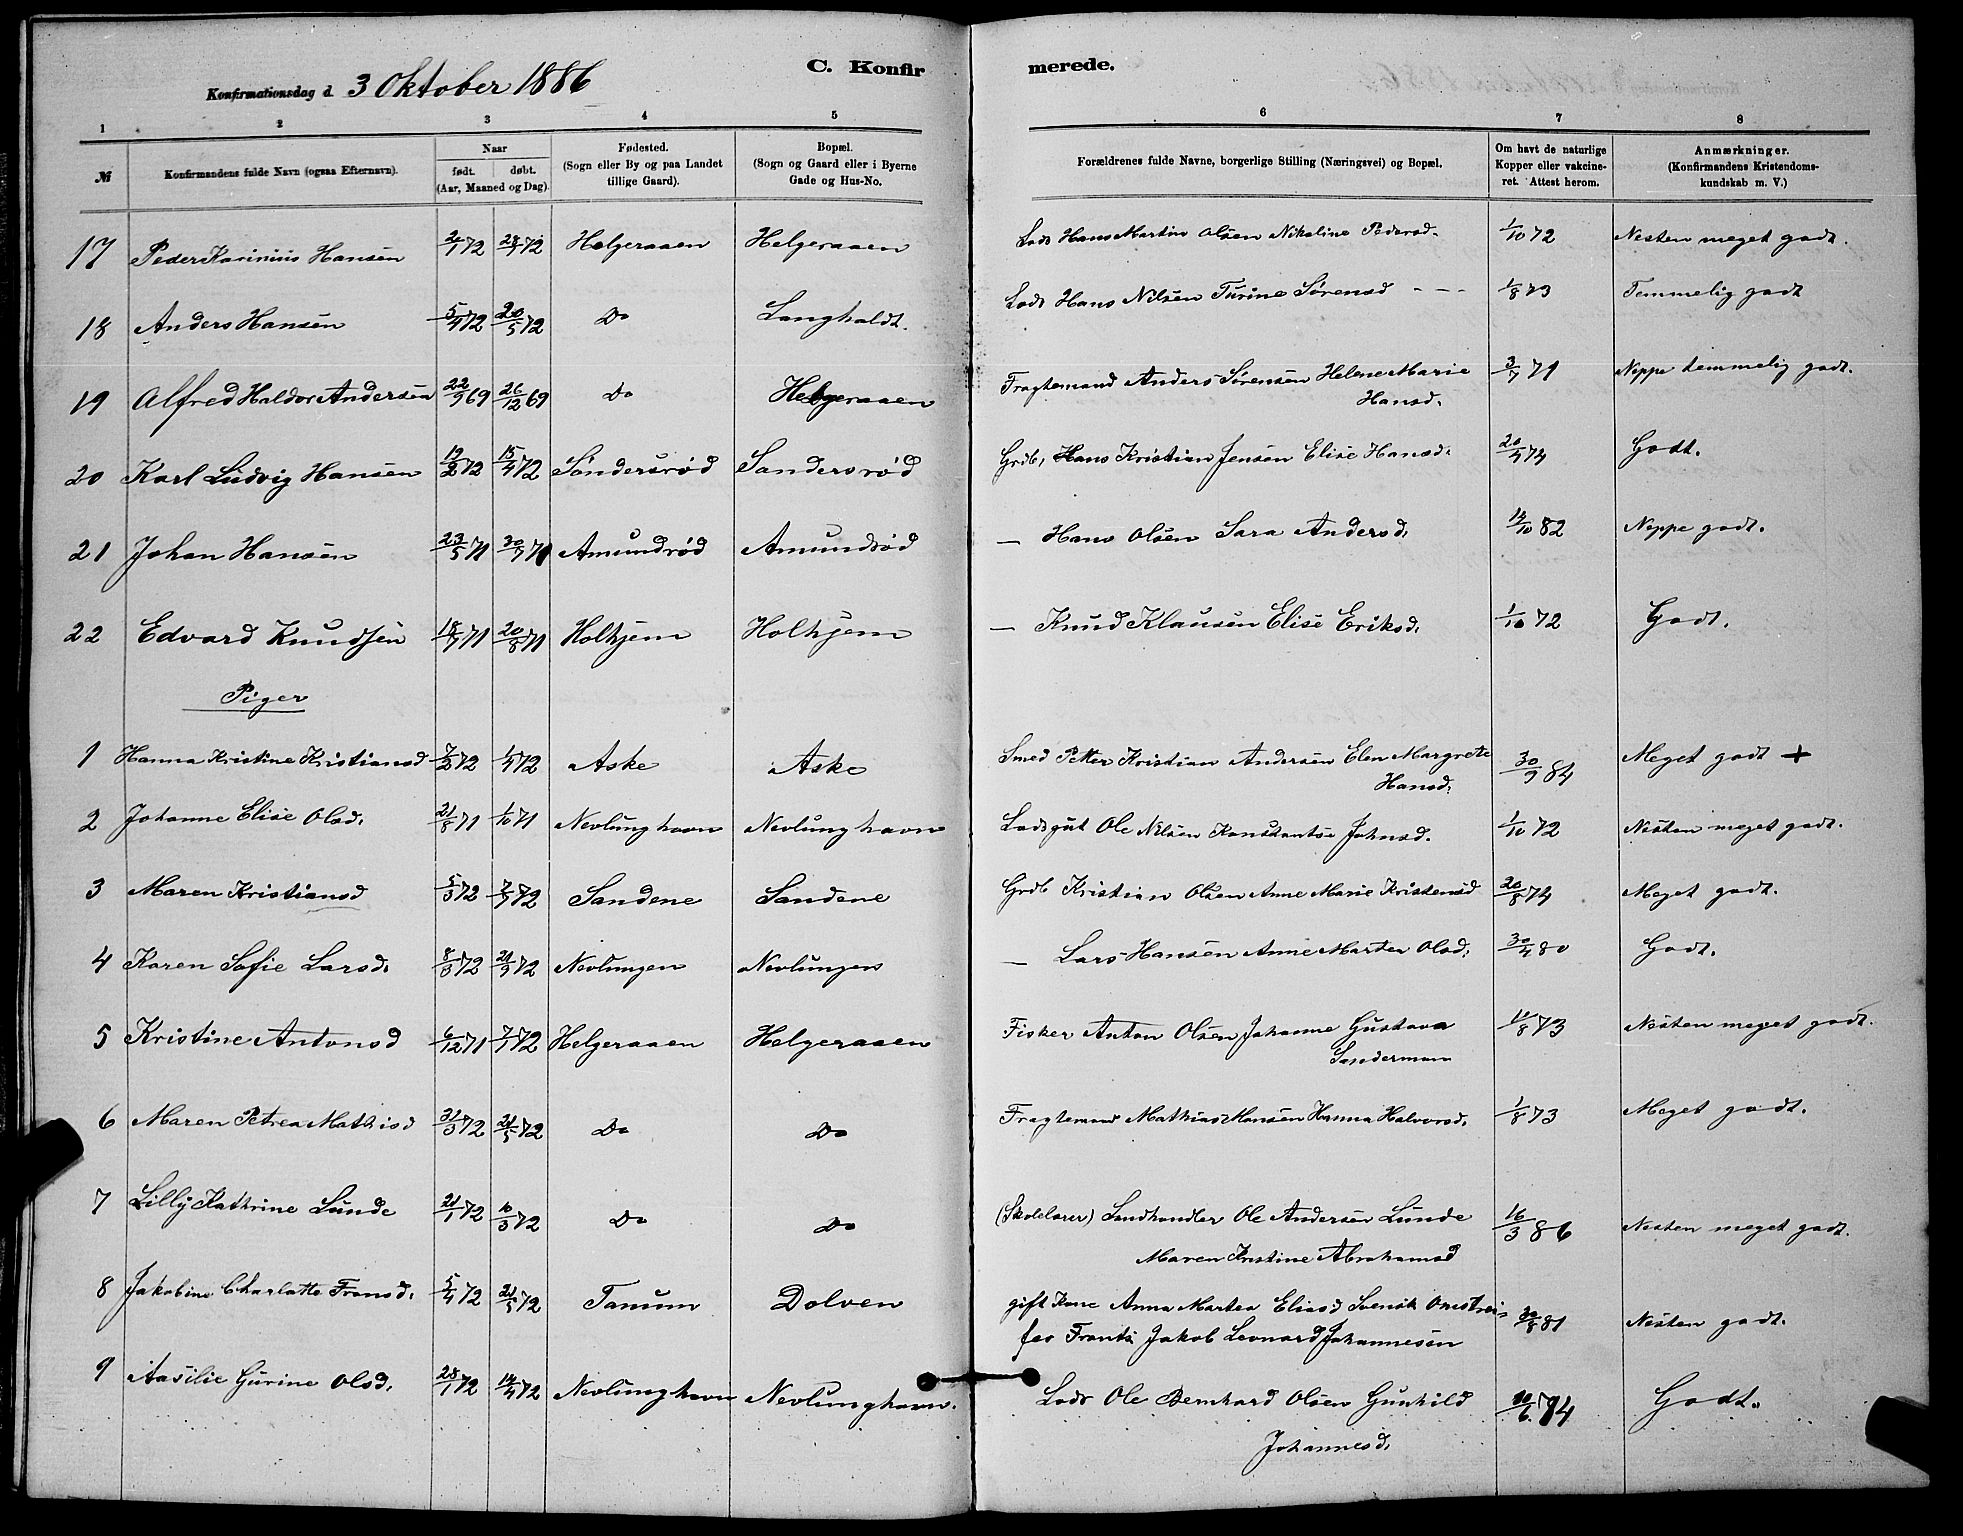 C. Konfirmerede.
Konfirmationsdag d. 3 Oktober 1886
1 2 3 4 5 6 7 8
№ Konfirmandens fulde Navn (ogsaa Efternavn). Naar født. døbt. (Aar, Maaned og Dag). Fødested. (Sogn eller By og paa Landet tillige Gaard). Bopæl. (Sogn og Gaard eller i Byerne Gade og Hus-No. Forældrenes fulde Navne, borgerlige Stilling (Næringsvei) og Bopæl. Om havt de naturlige Kopper eller vakcineret. Attest herom. Anmærkninger. (Konfirmandens Kristendomskundskab m. V.)
17 Peder Karinius Hansen 20/1 72 28/4 72 Helgeraaen Helgeraaen Lods Hans Martin Olsen Nikoline Pedersd. 1/10 72 Nesten meget godt.
18 Anders Hansen 5/4 72 20/5 72 Do Langholdt. Lods Hans Nilsen Turine Sørensd - - - 1/8 73 Temmelig godt
19 Alfred Haldor Andersen 22/9 69 26/12 69 Do Helgeraaen Fragtemand Anders Sørensen Helene Marie 3/7 71 Neppe temmelig godt.
Hansd.
20 Karl Ludvig Hansen 19/2 72 15/4 72 Søndersrød Sandersrød Grdb, Hans Kristian Jensen Elise Hansd. 20/4 74 Godt.
21 Johan Hansen 23/5 71 30/7 71 Amundrød Amundrød — Hans Olsen Sara Andersd, 14/10 82 Neppe godt.
22 Edvard Knudsen 18/7 71 20/8 71 Holhjem Holhjem — Knud Klausen Elise Eriksd, 1/10 72 Godt.
Piger
1 Hanna Kristine Kristiansd 7/2 72 1/4 72 Aske Aske Smed Petter Kristian Andersen Elen Margrete 30/9 84 Meget godt +
Hansd,
2 Johanne Elise Olsd, 21/8 71 1/10 71 Nevlunghavn Nevlunghavn Lodsgut Ole Nilsen Konstantse Johnsd. 1/10 72 Nesten meget godt.
3 Maren Kristiansd 5/3 72 7/7 72 Sandene Sandene Grdb Kristian Olsen Anne Marie Kristensd 20/8 74 Meget godt.
4 Karen Sofie Larsd, 8/3 72 21/9 72 Nevlungen Nevlungen — Lars Hansen Anne Martea Olsd, 30/4 80 Godt.
5 Kristine Antonsd 6/12 71 7/7 72 Helgeraaen Helgeraaen Fisker Anton Olsen Johanne Gustava 11/8 73 Nesten meget godt.
Sandermann
6 Maren Petrea Mathisd 31/3 72 21/5 72 Do Do Fragtemand Mathias Hansen Hanna Halvorsd. 1/8 73 Meget godt.
7 Lilly Kathrine Lunde 21/1 72 10/3 72 Do Do (Skolelærer) Landhandler Ole Andersen Lunde 16/3 86 Nesten meget godt.
Maren Kristine Abrahamsd
8 Jakobine Charlotte Fransd, 5/4 72 21/5 72 Tanum Dolven gift Kone Anna Martea Eliasd Svensk Omstrei- 30/8 81 Nesten godt.
fer Frants Jakob Leonard Johannesen
9 Aasilie Gurine Olsd, 28/1 72 14/4 72 Nevlunghavn Nevlunghavn. Lods Ole Bernhard Olsen Gunhild 10/6 74 Godt.
Johannesd,